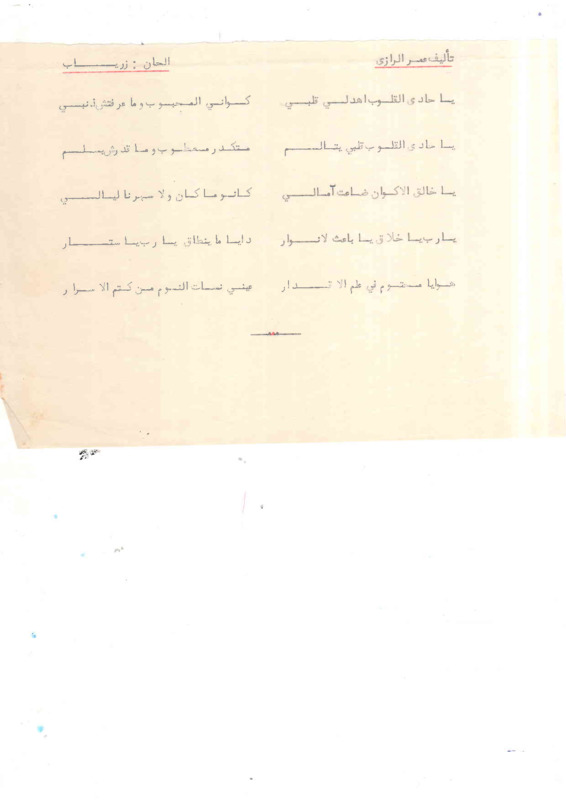 تأليف عمر الرازى الحان : زرياب
يا حادى القلوب اهدلي قلبي كواني المحبوب وما عرفتش ذنبي
يا حادى القلوب قلبي يتألم متكدر معطوب وما قدرش يسلم
يا خالق الاكوان ضاعت آمالي كانو ما كان ولا سهرنا ليالي
يارب يا خلاق يا باعث لانوار دايا ما ينطاق يا رب يا ستار
هوايا محتوم في طم الاقدار عيني نسات النوم من كتم الاسرار